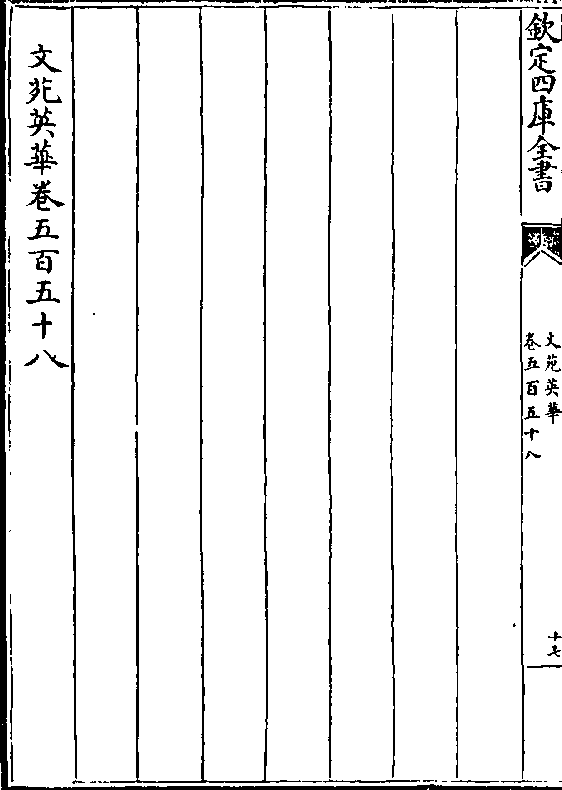 欽定四庫全書
文苑英華
卷五百五十八
十七
文苑英華卷五百五十八